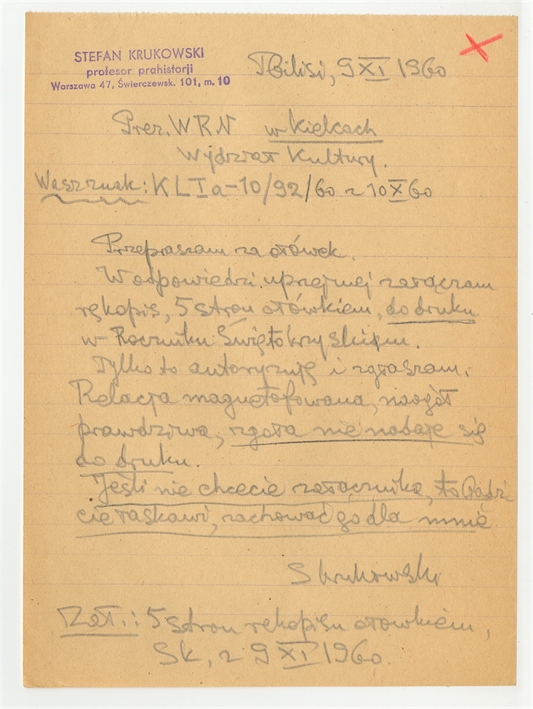 STEFAN KRUKOWSKI
profesor prahistorji
Warszawa 47, Świerczewsk. 101, m. 10
Tbilisi, 9 XI 1960
Prez. WRN w Kielcach
Wydział Kultury.
Wasz znak: KL Ia-10/92/60 z 10 X 60
Przepraszam za ołówek.
W odpowiedzi uprzejmej załączam
rękopis, 5 stron ołówkiem, do druku
w Roczniku Świętokrzyskim.
Tylko to autoryzuję i zgłaszam.
Relacja magnetofowana, naogół
prawdziwa, zgoła nie nadaje się
do druku.
Jeśli nie chcecie załącznika, to bądź
cie łaskawi, zachować go dla mnie
S Krukowski
Zał.: 5 stron rękopisu ołówkiem,
Sk, z 9 XI 1960.